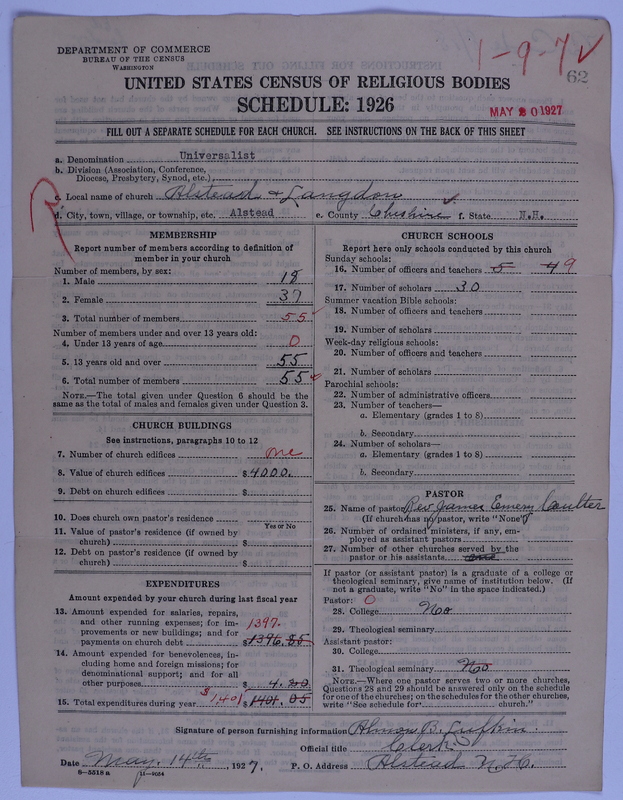 DEPARTMENT OF COMMERCE
BUREAU OF THE CENSUS
WASHINGTON
1-9-7 ✓
62
UNITED STATES CENSUS OF RELIGIOUS BODIES
SCHEDULE: 1926
MAY 20 1927
FILL OUT A SEPARATE SCHEDULE FOR EACH CHURCH. SEE INSTRUCTIONS ON THE BACK OF THIS SHEET
a. Denomination Universalist
b. Division (Association, Conference,
Diocese, Presbytery, Synod, etc.)
c. Local name of church Alstead & Langdon
d. City, town, village, or township, etc. Alstead e. County Cheshire ✓ f. State N.H.
R
MEMBERSHIP
Report number of members according to definition of
member in your church
Number of members, by sex:
1. Male 18
2. Female 37
3. Total number of members 55
Number of members under and over 13 years old:
4. Under 13 years of age 0
5. 13 years old and over 55
6. Total number of members 55
NOTE.—The total given under Question 6 should be the
same as the total of males and females given under Question 3.
CHURCH BUILDINGS
See instructions, paragraphs 10 to 12
7. Number of church edifices one
8. Value of church edifices $4000.
9. Debt on church edifices $
10. Does church own pastor's residence
Yes or No
11. Value of pastor's residence (if owned by
church) $
12. Debt on pastor's residence (if owned by
church) $
EXPENDITURES
Amount expended by your church during last fiscal year
13. Amount expended for salaries, repairs,
and other running expenses; for im- 1397.
provements or new buildings; and for
payments on church debt $1396.85
14. Amount expended for benevolences, in-
cluding home and foreign missions; for
denominational support; and for all
other purposes $ 4.20
15. Total expenditures during year $1,401 $1401.05
CHURCH SCHOOLS
Report here only schools conducted by this church
Sunday schools:
16. Number of officers and teachers 5 4 9
17. Number of scholars 30
Summer vacation Bible schools:
18. Number of officers and teachers
19. Number of scholars
Week-day religious schools:
20. Number of officers and teachers
21. Number of scholars
Parochial schools:
22. Number of administrative officers
23. Number of teachers—
a. Elementary (grades 1 to 8)
b. Secondary
24. Number of scholars—
a. Elementary (grades 1 to 8)
b. Secondary
PASTOR
25. Name of pastor Rev James Emery Coulter
(If church has no pastor, write "None")
26. Number of ordained ministers, if any, em-
ployed as assistant pastors
27. Number of other churches served by the
pastor or his assistants
If pastor (or assistant pastor) is a graduate of a college or
theological seminary, give name of institution below. (If
not a graduate, write "No" in the space indicated.)
Pastor: 0
28. College No
29. Theological seminary
Assistant pastor:
30. College
31. Theological seminary No
NOTE.—Where one pastor serves two or more churches,
Questions 28 and 29 should be answered only on the schedule
for one of the churches; on the schedules for the other churches,
write "See schedule for church."
Signature of person furnishing information Almon B. Lufkin
Official title Clerk
Date May 14th, 1927. P. O. Address Alstead N.H.
8—5518 a 11—9054